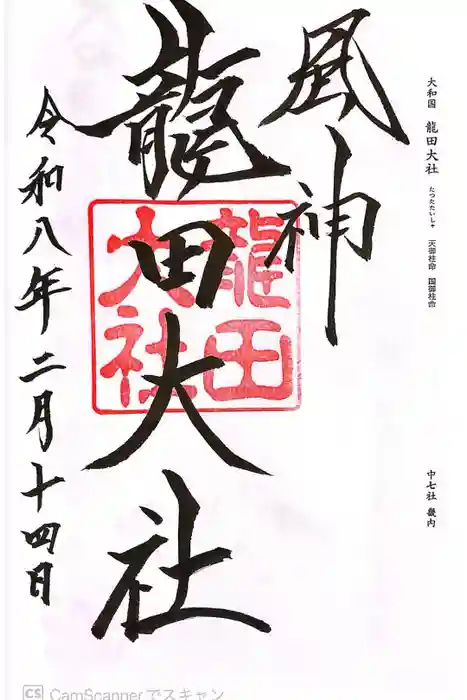 大和国 龍田大社 たつたたいしゃ 天御柱命 国御柱命
中七社 畿内
風神
龍田大社
龍田大社
令和八年二月十四日
CS CamScannerでスキャン